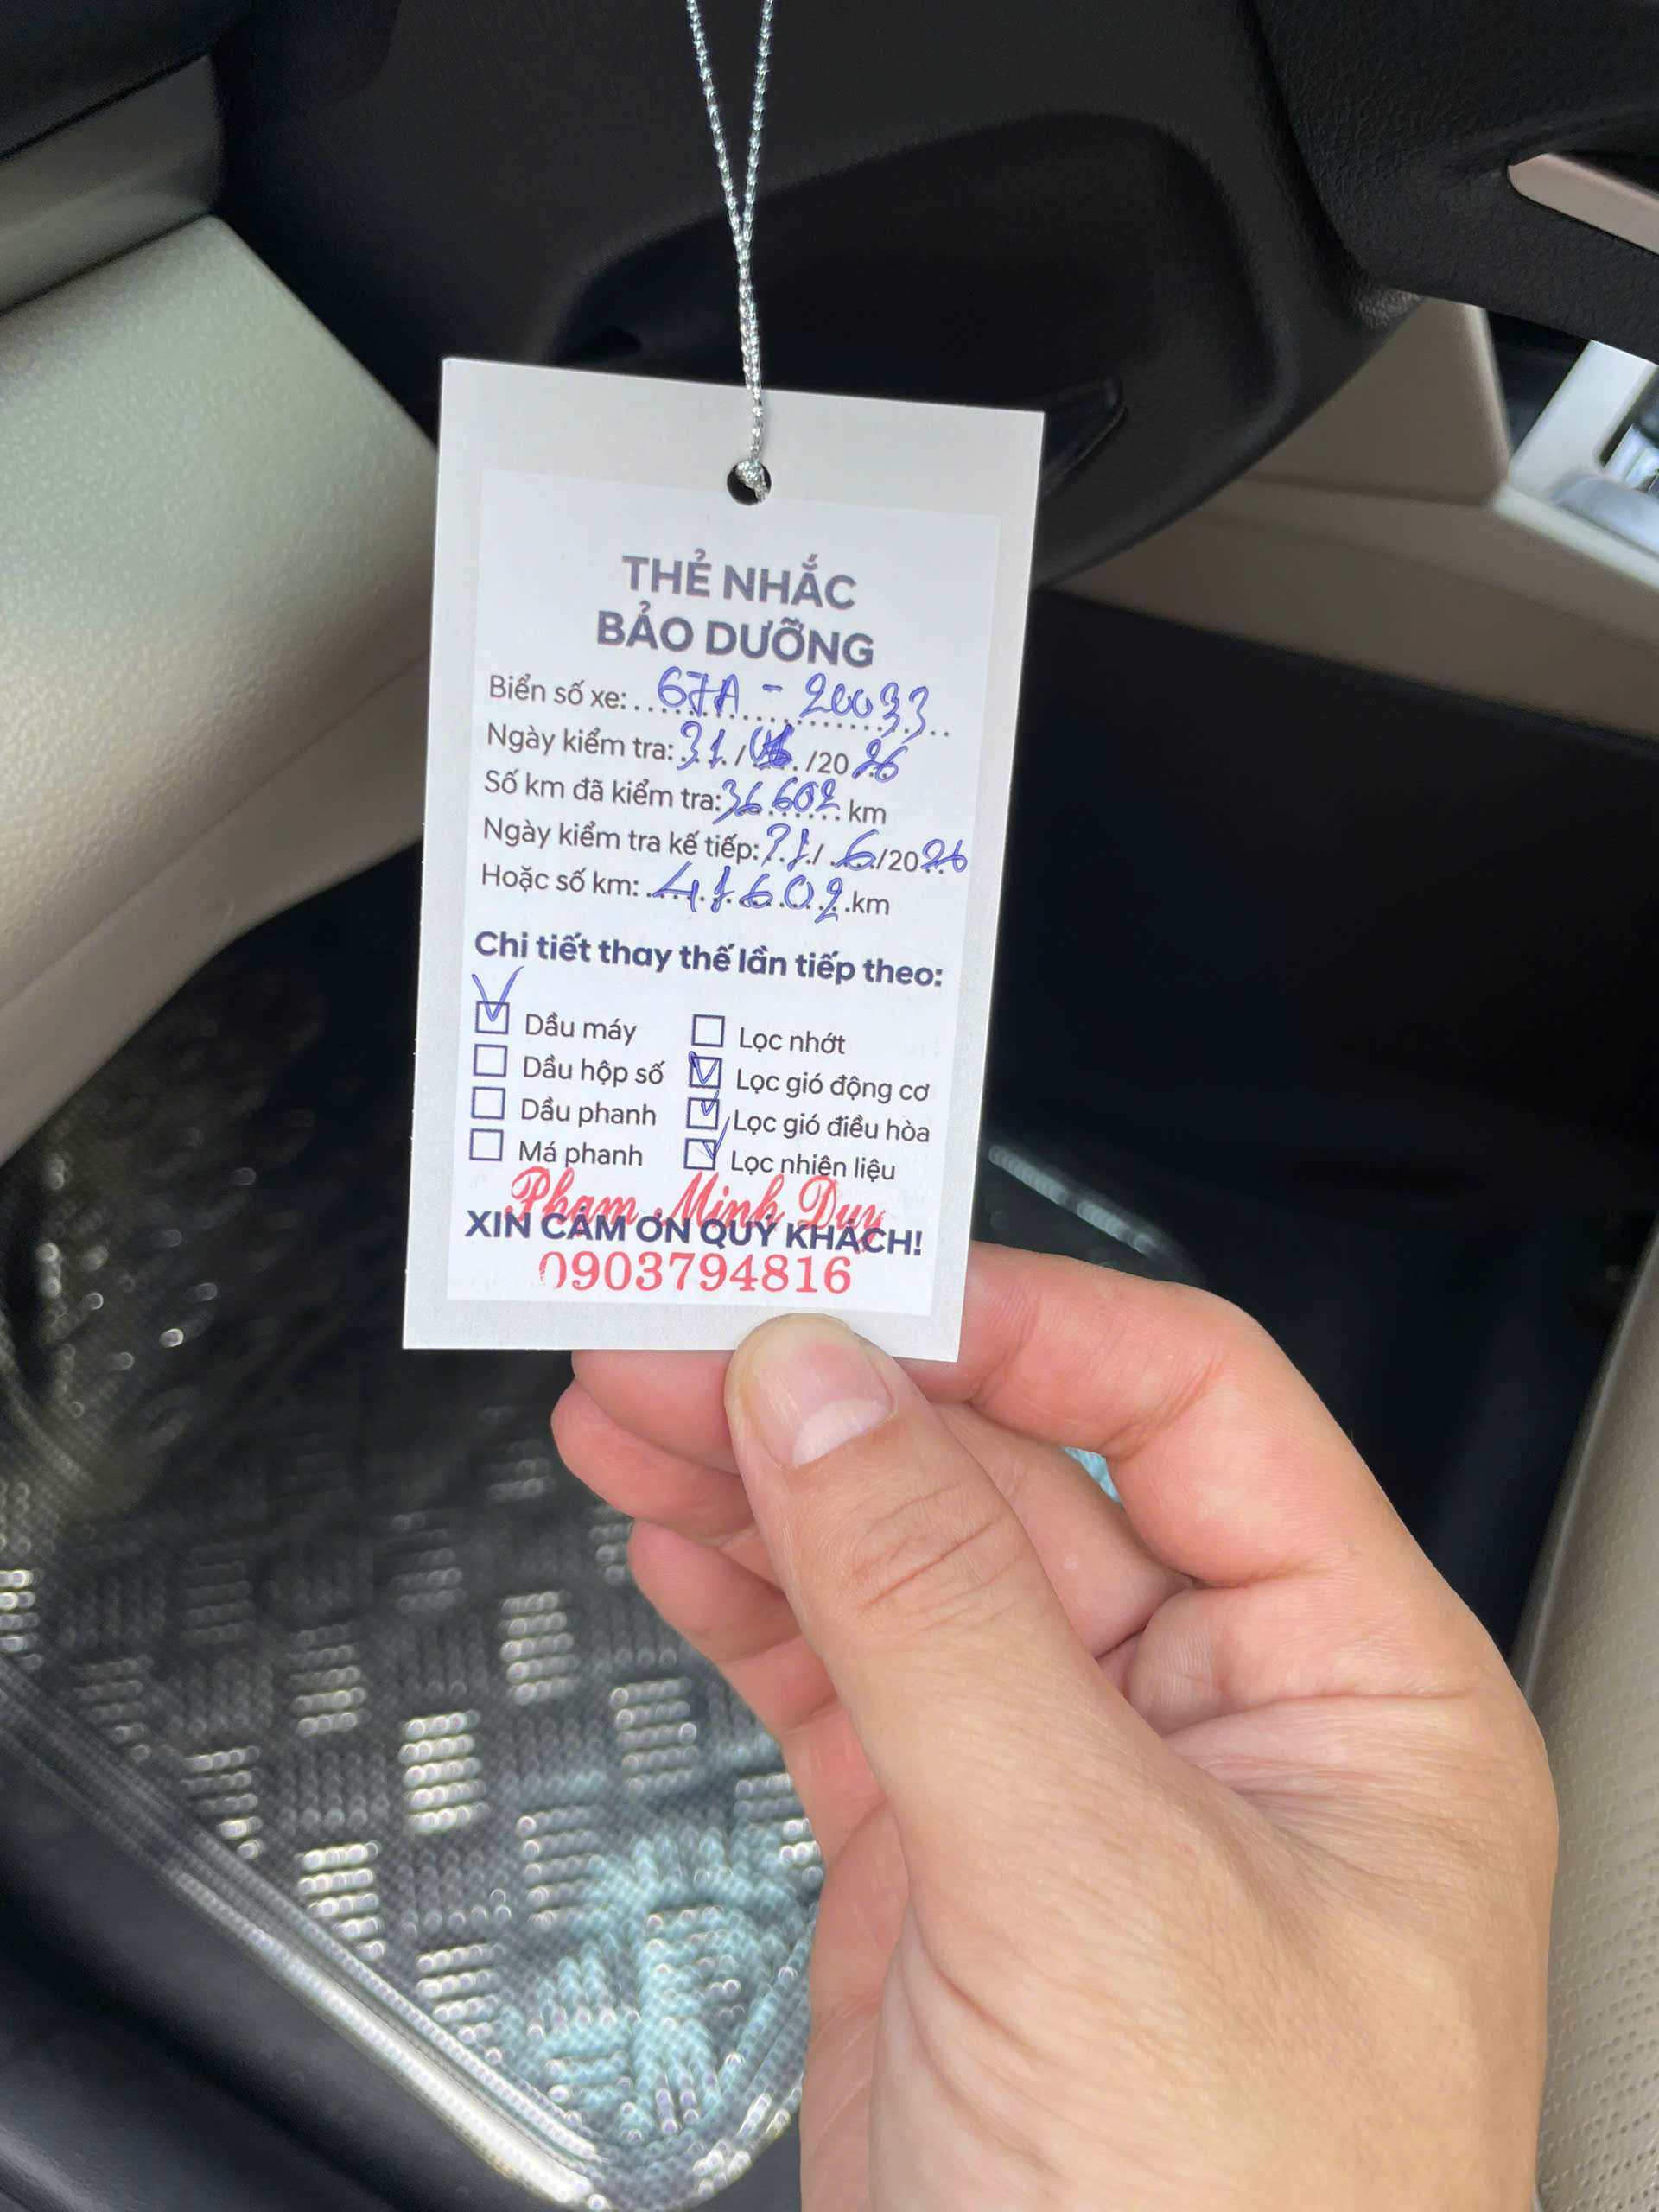 THẺ NHẮC
BẢO DƯỠNG
Biển số xe: 67A - 20033
Ngày kiểm tra: 31 / /20 26
Số km đã kiểm tra: 36602 km
Ngày kiểm tra kế tiếp: 31 / 6 /20 26
Hoặc số km: 41602 km
Chi tiết thay thế lần tiếp theo:
Dầu máy Lọc nhớt
Dầu hộp số Lọc gió động cơ
Dầu phanh Lọc gió điều hòa
Má phanh Lọc nhiên liệu
Phạm Minh Duy
XIN CẢM ƠN QUÝ KHÁCH!
0903794816